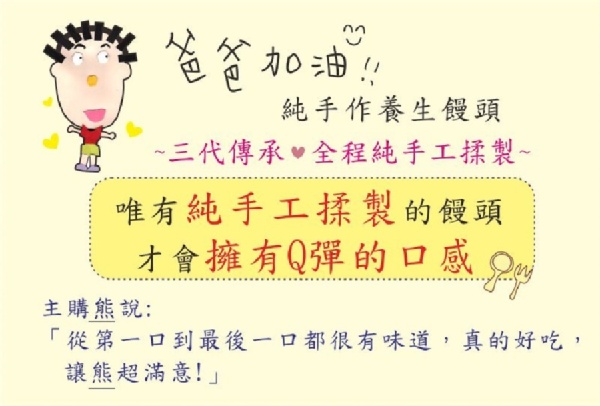 爸爸加油!!
純手作養生饅頭
~三代傳承♥全程純手工揉製~
唯有純手工揉製的饅頭
才會擁有Q彈的口感
主購熊說:
「從第一口到最後一口都很有味道，真的好吃，
讓熊超滿意!」